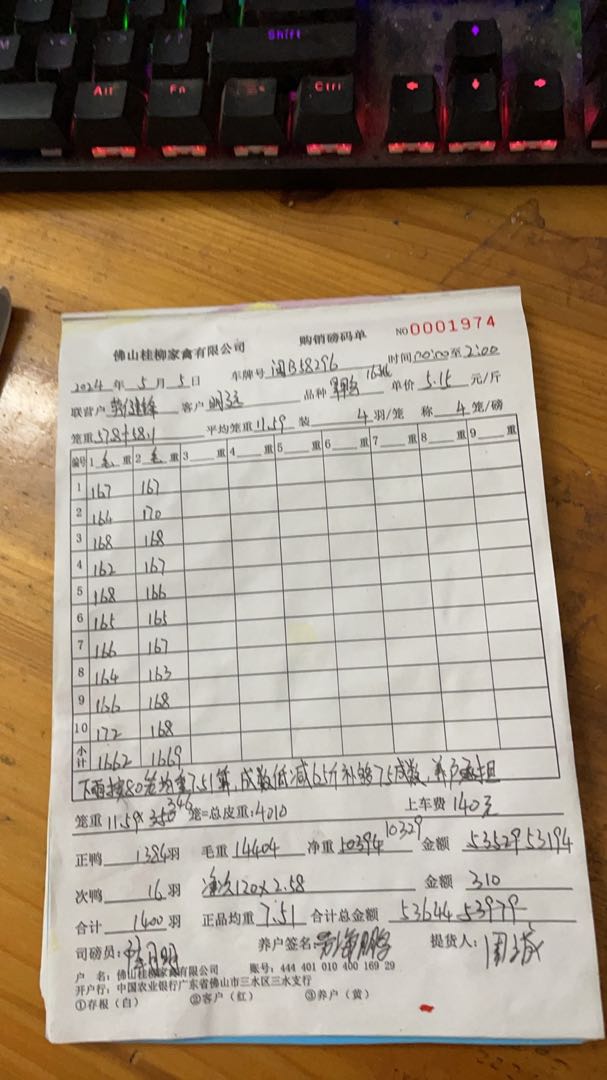 Shift
Alt Fn Ctrl
佛山桂柳家禽有限公司 购销磅码单 NO 0001974
2024 年 5 月 5 日 车牌号 闽B58296 时间 00:00 至 2:00
联营户 客户 品种 单价 5.15 元/斤
笼重 57.8+58.1 平均笼重 11.59 装 4 羽/笼 称 4 笼/磅
编号 1 毛 重 2 毛 重 3 重 4 重 5 重 6 重 7 重 8 重 9 重
1 167 167
2 164 170
3 168 168
4 162 167
5 168 166
6 165 165
7 166 167
8 164 163
9 166 168
10 172 168
小计 1662 1669
下雨按80笼均重7.51算,成数低减65斤补够75成数,养户承担
笼重 11.59× 350 346 笼=总皮重:4010 上车费 140元
正鸭 1384 羽 毛重 14404 净重 10394 10329 金额 53529 53194
次鸭 16 羽 净次120×2.58 金额 310
合计 1400 羽 正品均重 7.51 合计总金额 53644 53979
司磅员: 养户签名: 提货人:
户 名:佛山桂柳家禽有限公司 账号:444 401 010 400 169 29
开户行:中国农业银行广东省佛山市三水区三水支行
①存根(白) ②客户(红) ③养户(黄)